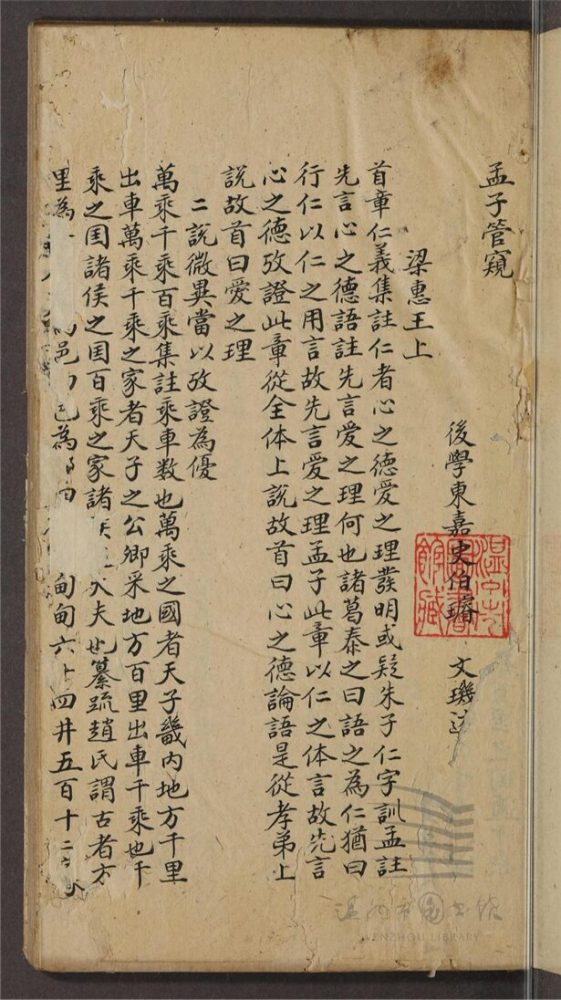 孟子管窺
後學東嘉史伯璿 文璣
梁惠王上
首章仁義集註仁者心之德愛之理發明或疑朱子仁字訓孟註
先言心之德語註先言愛之理何也諸葛泰之曰語之為仁猶曰
行仁以仁之用言故先言愛之理孟子此章以仁之体言故先言
心之德攷證此章從全体上說故首曰心之德論語是從孝弟上
說故首曰愛之理
二說微異當以攷證為優
萬乘千乘百乘集註乘車数也萬乘之國者天子畿内地方千里
出車萬乘千乘之家者天子之公卿采地方百里出車千乘也千
乘之国諸侯之国百乘之家諸 大夫也纂疏趙氏謂古者方
里為 邑 為 甸 甸六十四井五百十二
温州市圖書館藏
温州市图书馆
WENZHOU LIBRARY